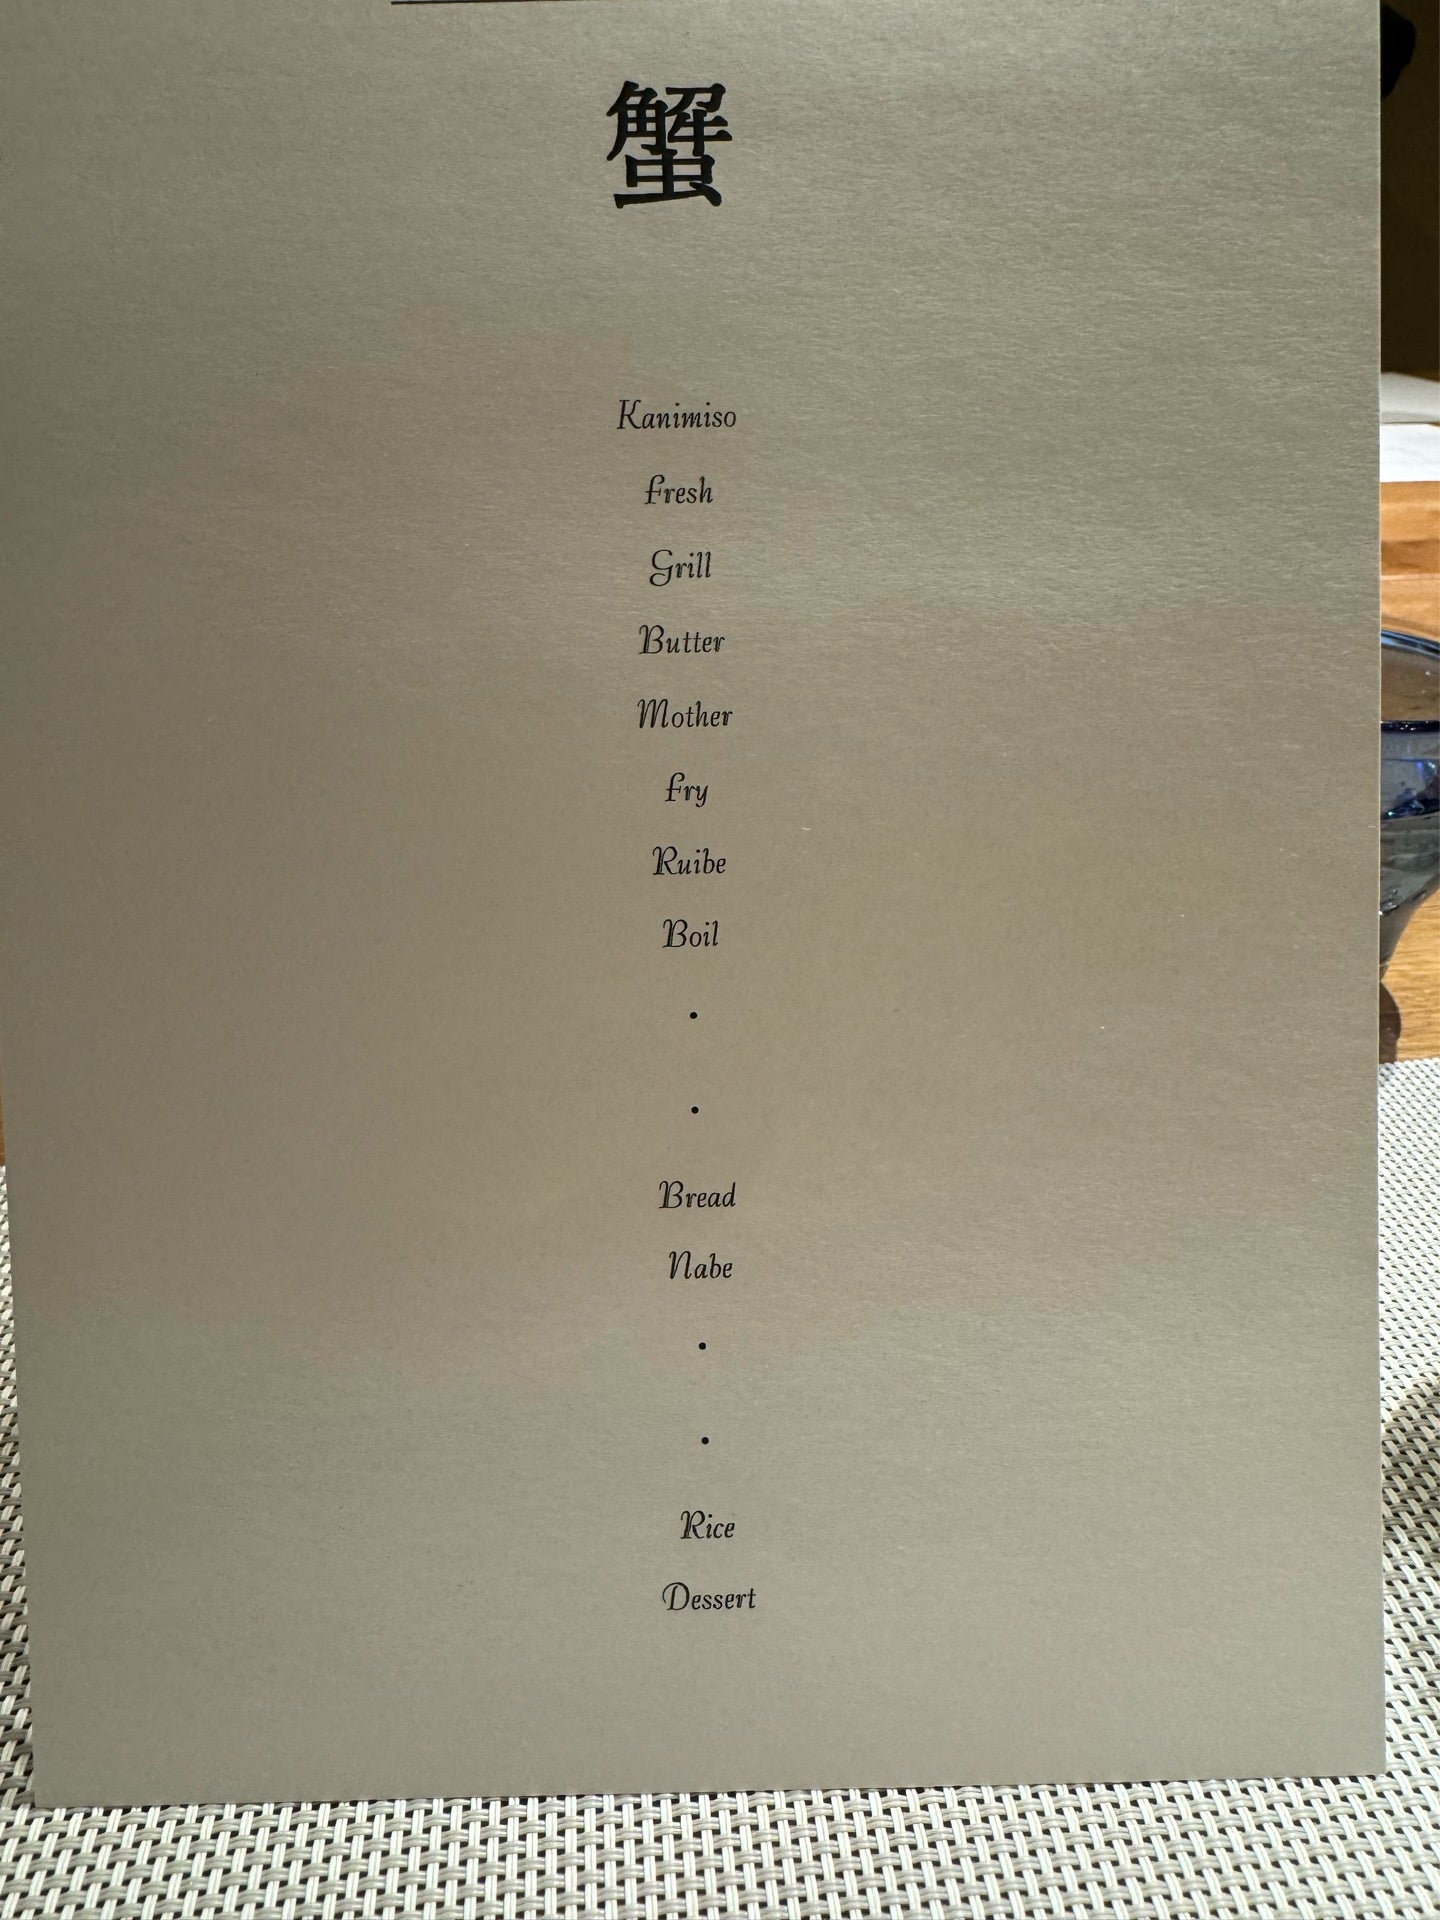 蟹
Kanimiso
Fresh
Grill
Butter
Mother
Fry
Ruibe
Boil
•
•
Bread
Nabe
•
•
Rice
Dessert